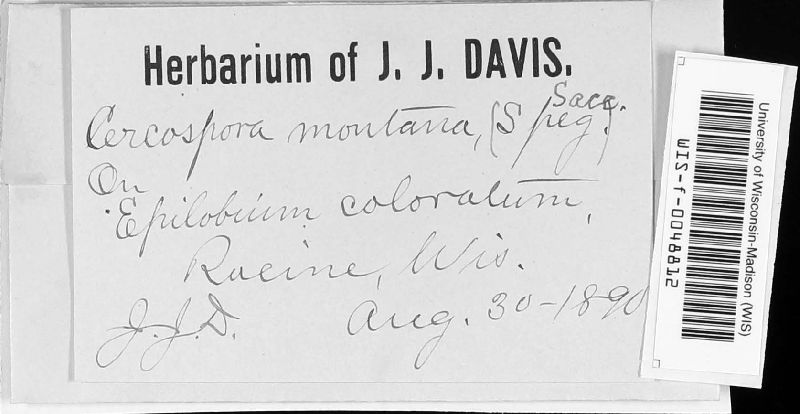 Herbarium of J. J. DAVIS.
Cercospora montana, (Speg.) Sacc.
On
Epilobium coloratum,
Racine, Wis.
J.J.D. Aug. 30-1890
University of Wisconsin-Madison (WIS)
WIS-f-0048812